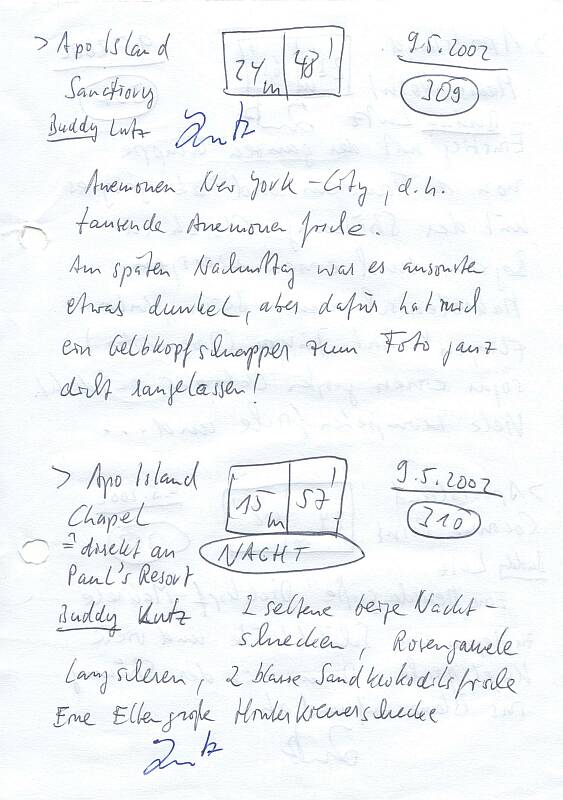 > Apo Island
24 m | 48'
9.5.2002
Sanctuary
309
Buddy Lutz Lutz
Anemonen New York-City, d.h.
tausende Anemonenfische.
Am späten Nachmittag war es ansonsten
etwas dunkel, aber dafür hat mich
ein Gelbkopfschnapper zum Foto ganz
dicht rangelassen!
> Apo Island
15 m | 57'
9.5.2002
Chapel
310
= direkt an
NACHT
Paul's Resort
Buddy Lutz 2 seltene beige Nacht-
schnecken, Rosengarnele
Langscheren, 2 blasse Sandkrokodilsfische
Eine Ellen große Hinterkiemerschnecke
Lutz